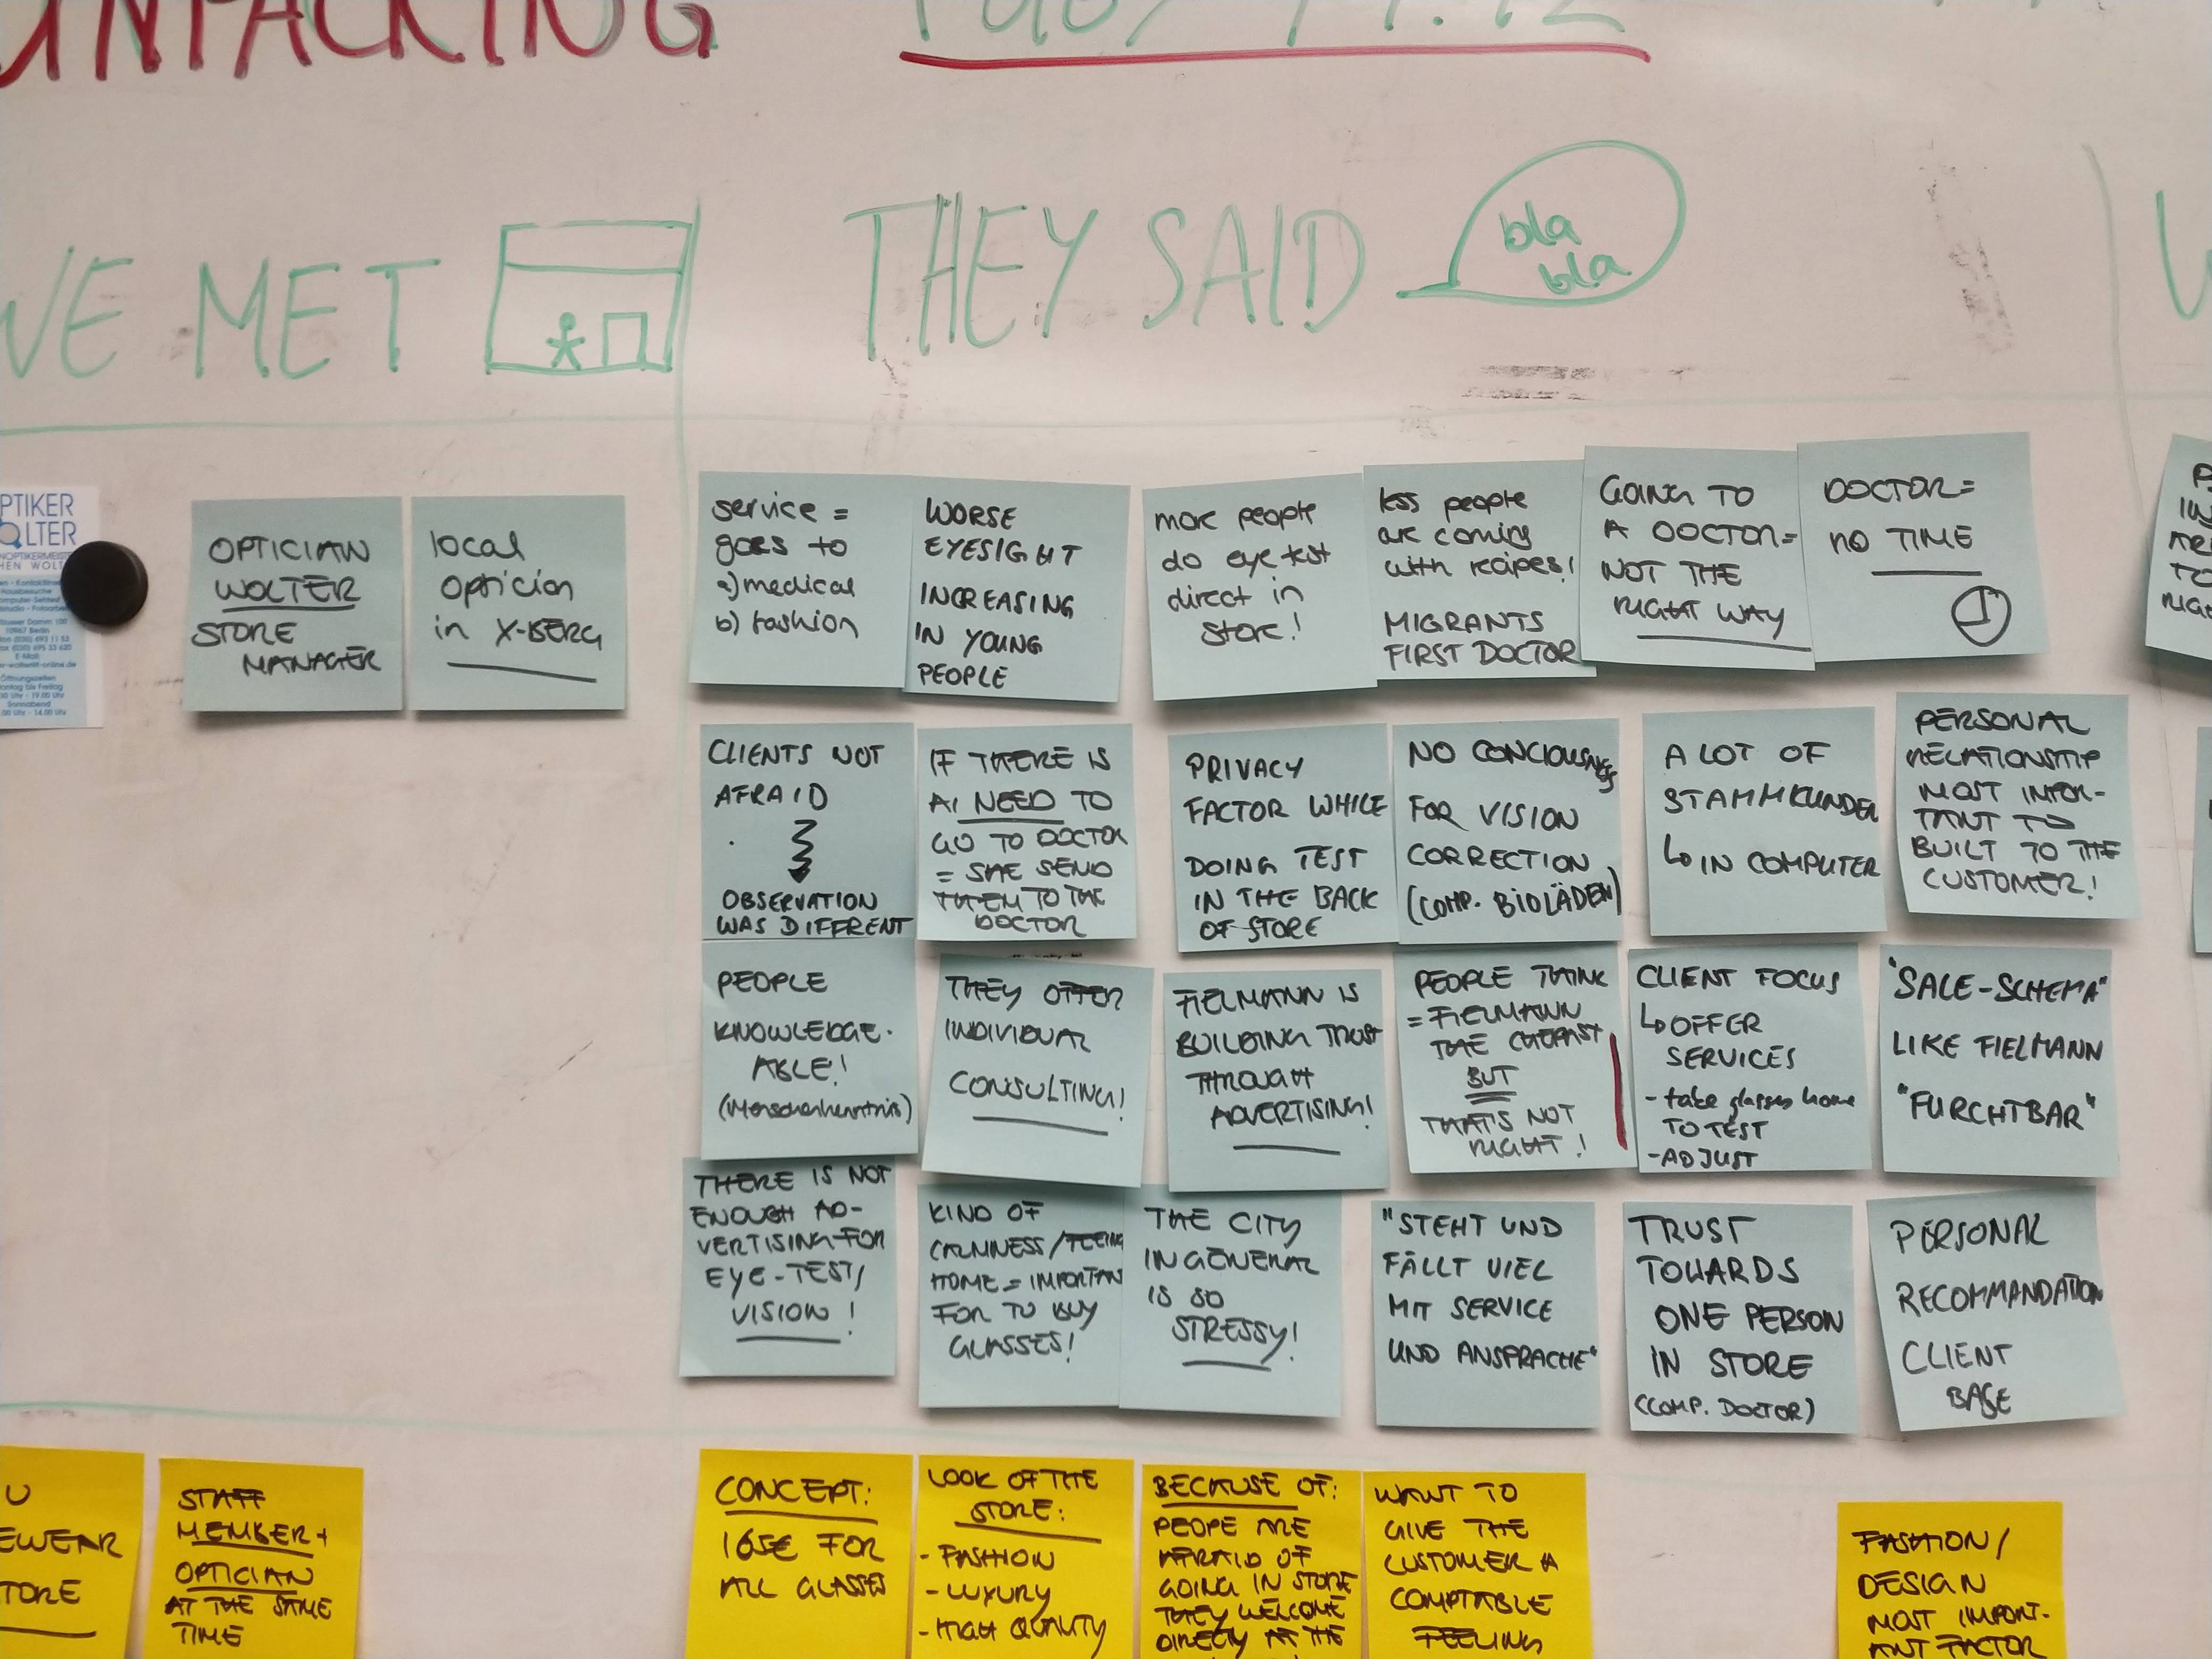 UNPACKING
WE MET
THEY SAID
bla
bla
OPTIKER
WOLTER
10967 Berlin
E-Mail:
Öffnungszeiten
Montag bis Freitag
Sonnabend
OPTICIAN
WOLTER
STORE
MANAGER
local
optician
in X-BERG
service =
goes to
a) medical
b) fashion
WORSE
EYESIGHT
INCREASING
IN YOUNG
PEOPLE
more people
do eye test
direct in
store!
less people
are coming
with recipes!
MIGRANTS
FIRST DOCTOR
GOING TO
A DOCTOR=
NOT THE
RIGHT WAY
DOCTOR=
NO TIME
CLIENTS NOT
AFRAID
OBSERVATION
WAS DIFFRENT
IF THERE IS
A NEED TO
GO TO DOCTOR
= SHE SEND
THEM TO THE
DOCTOR
PRIVACY
FACTOR WHILE
DOING TEST
IN THE BACK
OF STORE
NO CONCIOUSNESS
FOR VISION
CORRECTION
(COMP. BIOLÄDEN)
A LOT OF
STAMMKUNDEN
↳ IN COMPUTER
PERSONAL
RELATIONSHIP
MOST IMPOR-
TANT TO
BUILT TO THE
CUSTOMER!
PEOPLE
KNOWLEDGE-
ABLE!
(Menschenkenntnis)
THEY OFFER
INDIVIDUAL
CONSULTING!
FIELMANN IS
BUILDING TRUST
THROUGH
ADVERTISING!
PEOPLE THINK
= FIELMANN
THE CHEPAST
BUT
THAT'S NOT
RIGHT!
CLIENT FOCUS
↳ OFFER
SERVICES
- take glasses home
TO TEST
- ADJUST
"SALE-SCHEMA"
LIKE FIELMANN
"FURCHTBAR"
THERE IS NOT
ENOUGH AD-
VERTISING FOR
EYE-TEST/
VISION!
KIND OF
CALMNESS/FEELING
HOME = IMPORTAN
FOR TO BUY
GLASSES!
THE CITY
IN GENERAL
IS SO
STRESSY!
"STEHT UND
FÄLLT VIEL
MIT SERVICE
UND ANSPRACHE"
TRUST
TOWARDS
ONE PERSON
IN STORE
(COMP. DOCTOR)
PERSONAL
RECOMMANDATION
CLIENT
BASE
STAFF
MEMBER +
OPTICIAN
AT THE SAME
TIME
CONCEPT:
165€ FOR
ALL GLASSES
LOOK OF THE
STORE:
- FASHION
- LUXURY
- HIGH QUALITY
BECAUSE OF:
PEOPE ARE
AFRAID OF
GOING IN STORE
THEY WELCOME
DIRECTLY AT THE
WANT TO
GIVE THE
CUSTOMER A
COMPTABLE
FEELING
FASHION/
DESIGN
MOST IMPORT-
ANT FACTOR